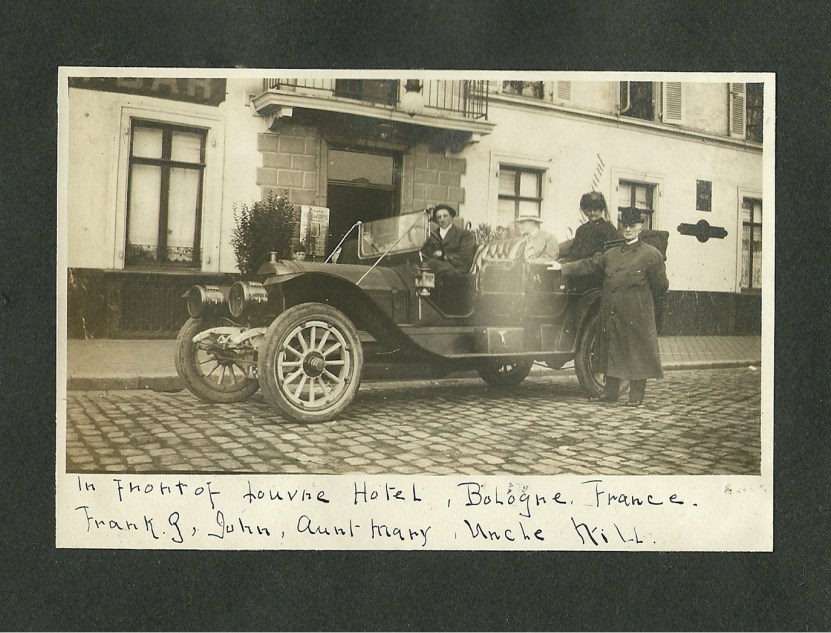 In Front of Louvre Hotel, Bologne, France.
Frank. G, John, Aunt Mary, Uncle Will.